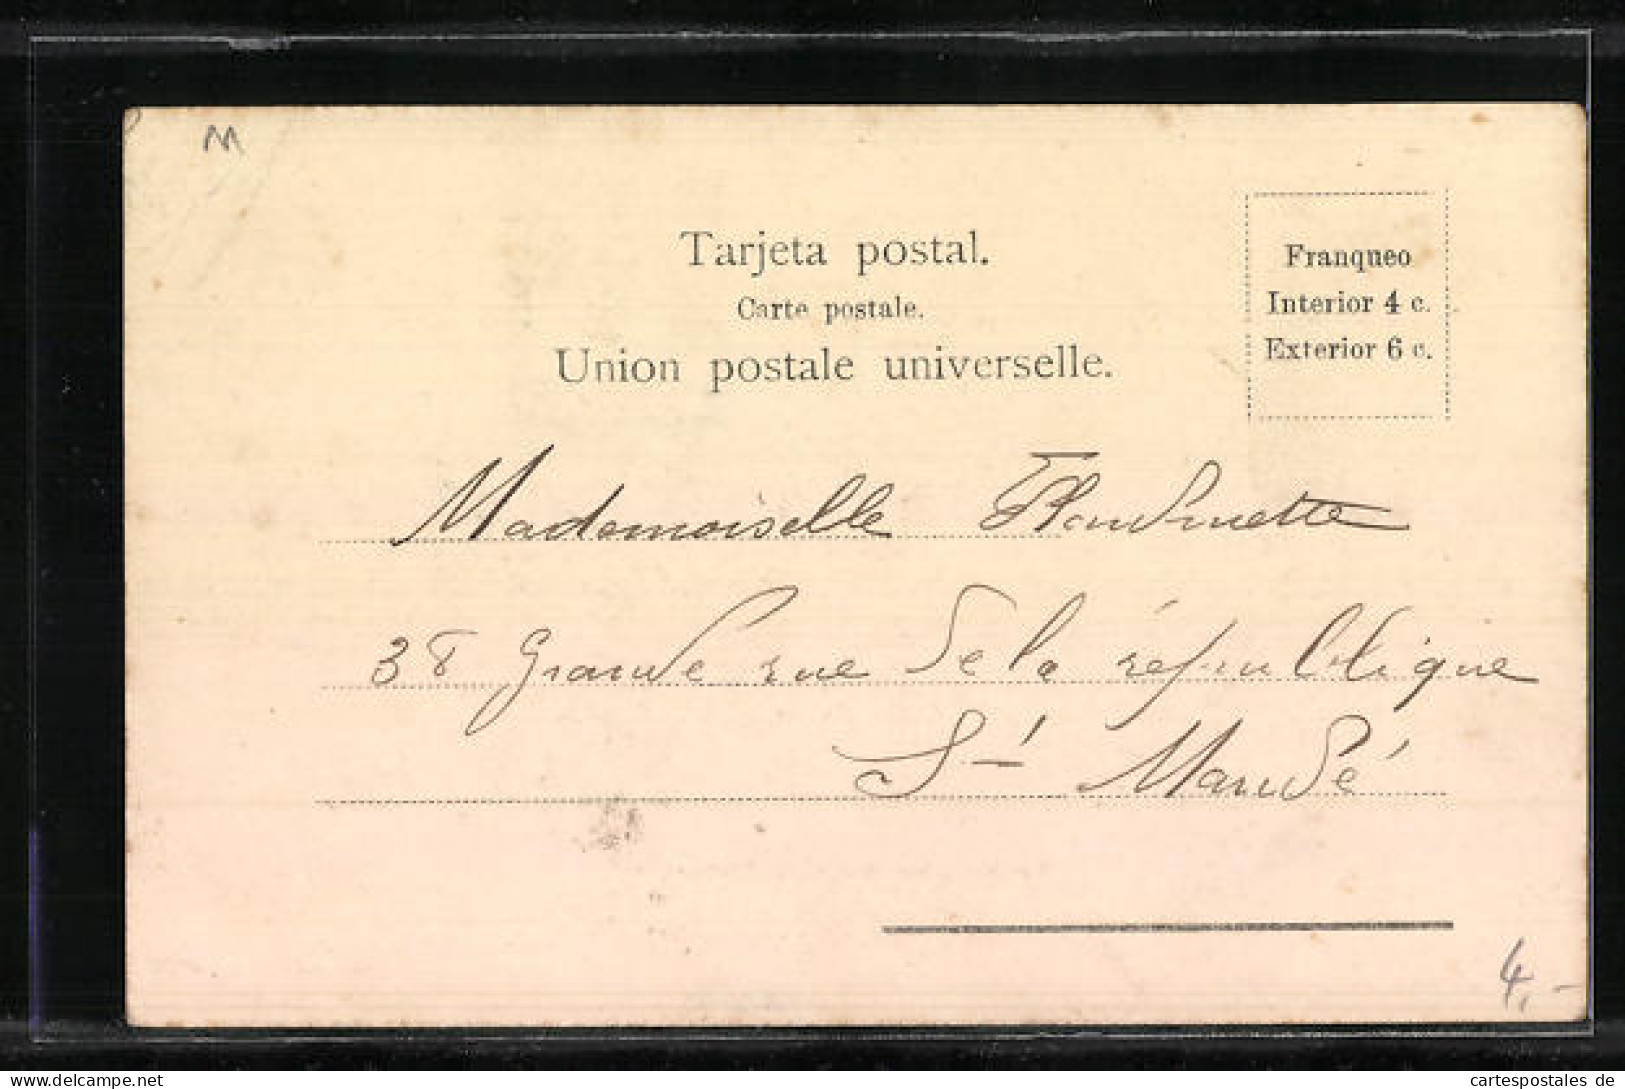 M
Tarjeta postal.
Carte postale.
Union postale universelle.
Franqueo
Interior 4 c.
Exterior 6 c.
Mademoiselle
38 Grande rue de la république
St Mandé
4,-
cartespostales de